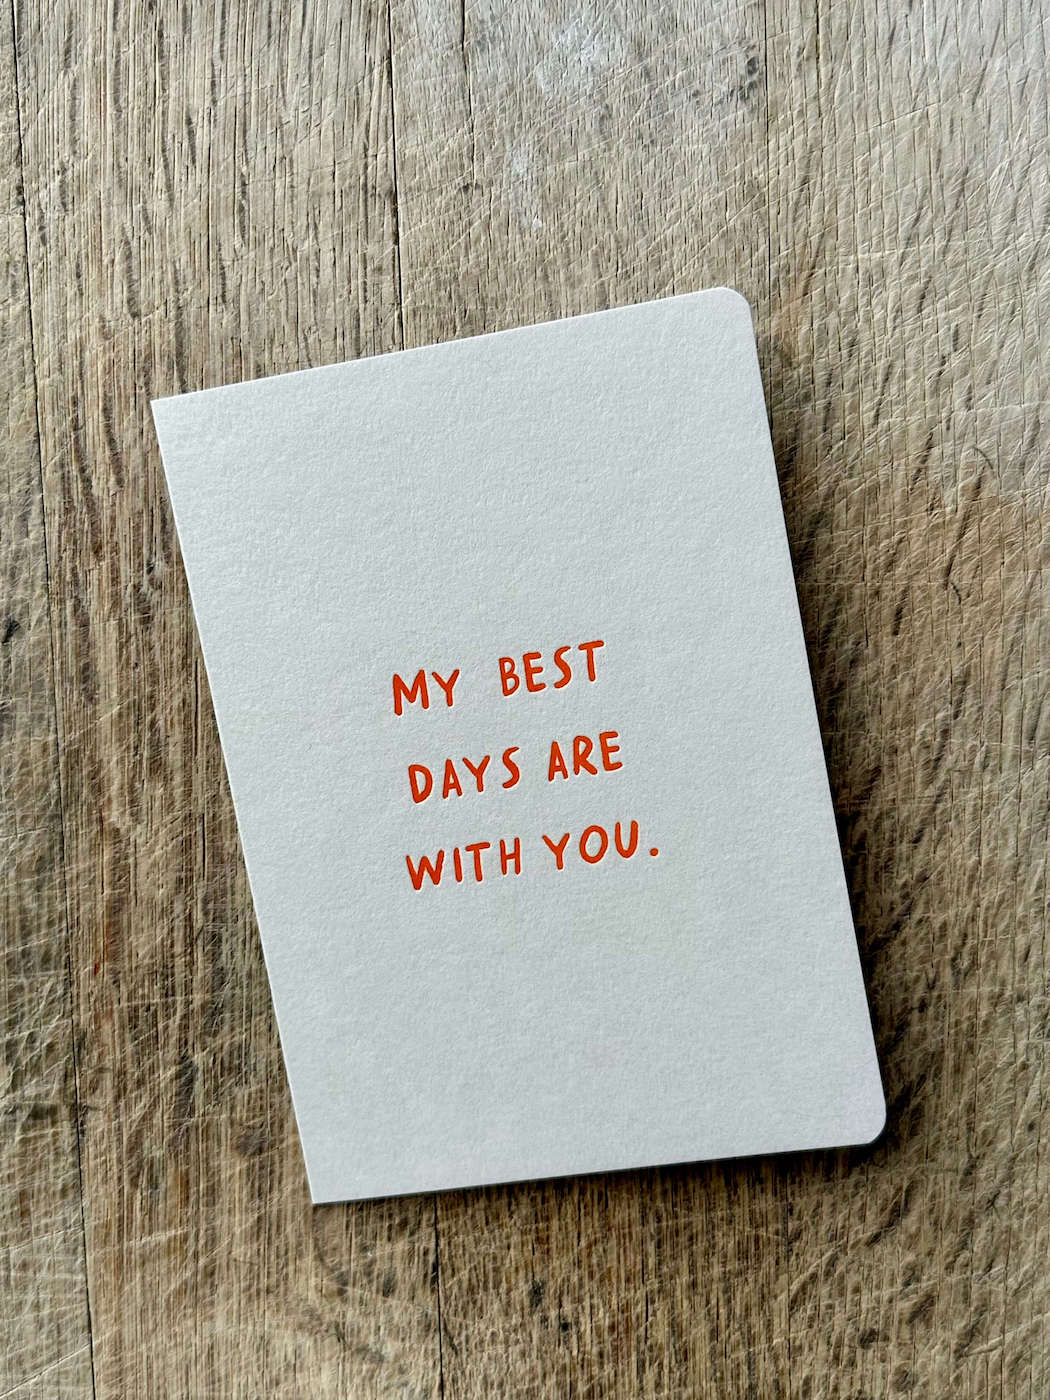 MY BEST
DAYS ARE
WITH YOU.